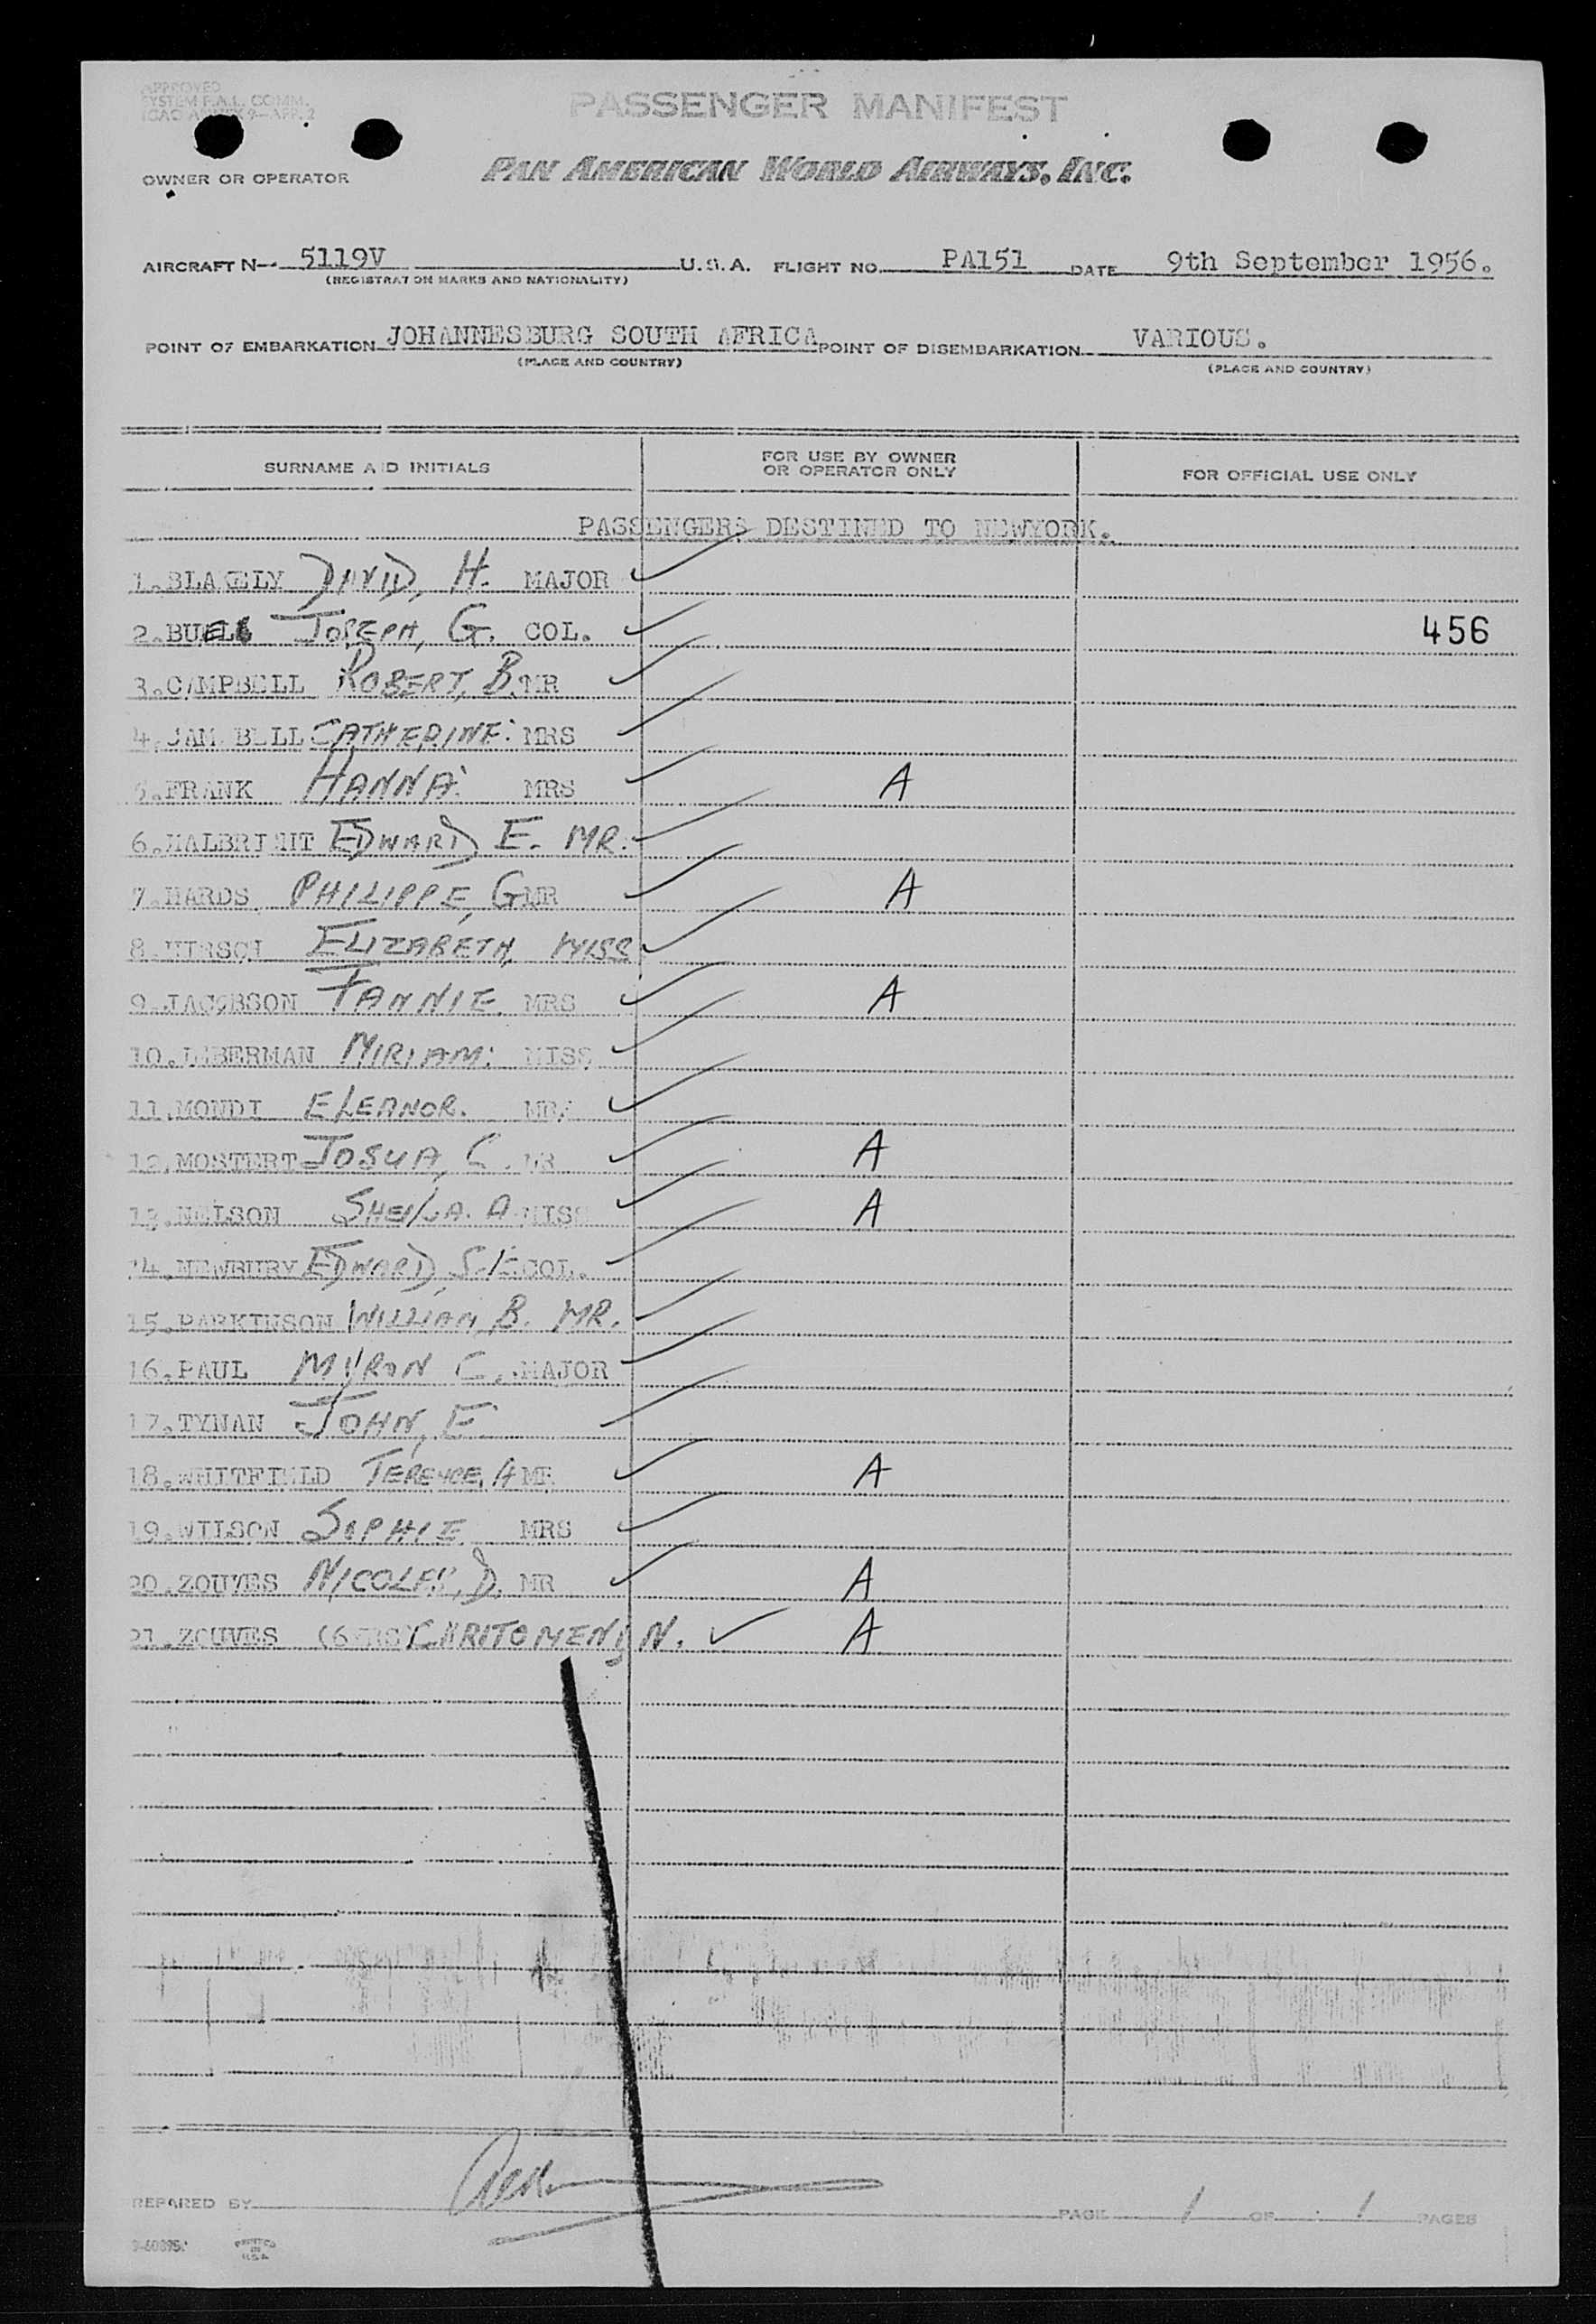 APPROVED
SYSTEM F.A.L. COMM.
ICAO ANNEX 9—APP. 2
PASSENGER MANIFEST
OWNER OR OPERATOR PAN AMERICAN WORLD AIRWAYS, INC.
AIRCRAFT N— 5119V U.S.A. FLIGHT NO. PA151 DATE 9th September 1956.
(REGISTRATION MARKS AND NATIONALITY)
POINT OF EMBARKATION JOHANNESBURG SOUTH AFRICA POINT OF DISEMBARKATION VARIOUS.
(PLACE AND COUNTRY) (PLACE AND COUNTRY)
SURNAME AND INITIALS FOR USE BY OWNER OR OPERATOR ONLY FOR OFFICIAL USE ONLY
PASSENGERS DESTINED TO NEWYORK.
1.BLAKELY DAVID, H. MAJOR ✓
2.BUELL JOSEPH, G. COL. ✓ 456
3.CAMPBELL ROBERT, B. MR ✓
4. CATHERINE. MRS ✓
5.FRANK HANNA. MRS ✓ A
6. EDWARD, E. MR. ✓
7.HARDS, PHILIPPE, G MR ✓ A
8.HIRSCH ELIZABETH, MISS ✓
9.JACOBSON FANNIE. MRS ✓ A
10. MIRIAM. MISS ✓
11.MONDI ELEANOR. ✓
12.MOSTERT JOSUA, C. MR ✓ A
13.NELSON SHEILA. A MISS ✓ A
14.NEWBURY EDWARD, COL. ✓
15.PARKINSON WILLIAM, B. MR. ✓
16.PAUL MYRON C. MAJOR ✓
17.TYNAN JOHN, E. ✓
18.WHITFIELD TERENCE, A MR ✓ A
19.WILSON SOPHIE MRS ✓
20.ZOUVES D. MR ✓ A
21.ZOUVES N. ✓ A
PREPARED BY PAGE 1 OF 1 PAGES
PRINTED
IN
U.S.A.